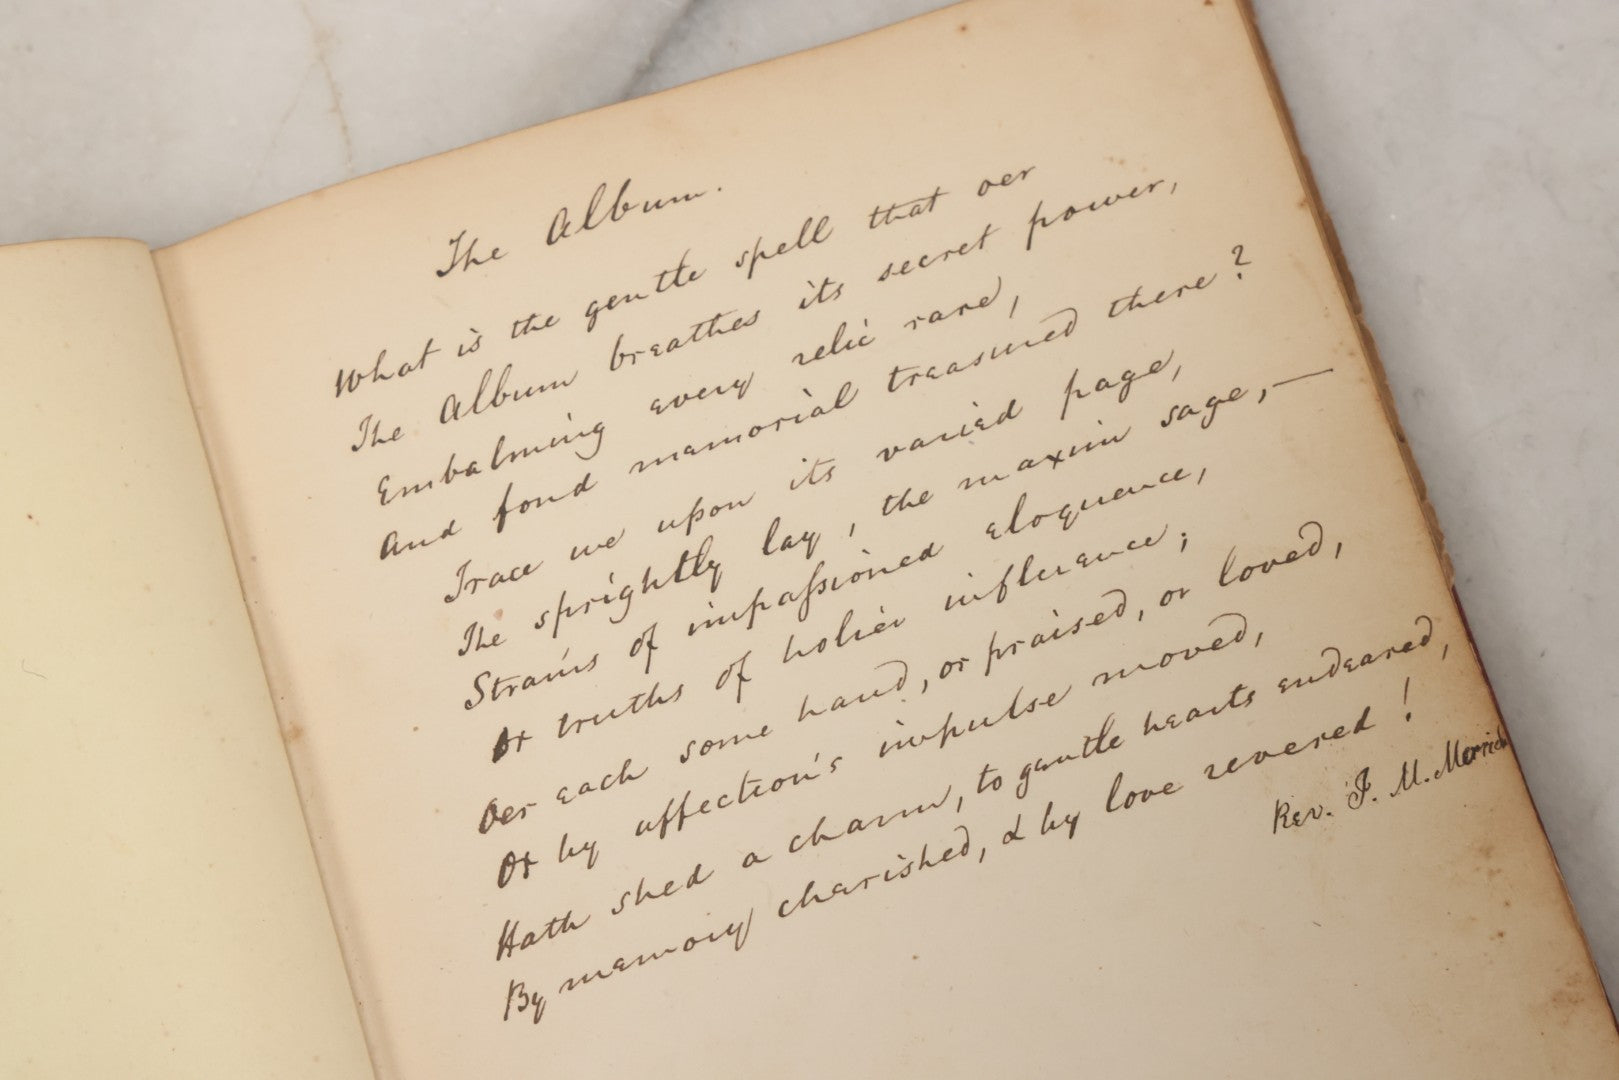 The Album.
What is the gentle spell that oer
The Album breathes its secret power,
Embalming every relic rare,
And fond memorial treasured there?
Trace we upon its varied page,
The sprightly lay, the maxim sage,—
Strains of impaſsioned eloquence,
Or truths of holier influence;
Oer each some hand, or praised, or loved,
Or by affection's impulse moved,
Hath shed a charm, to gentle hearts endeared,
By memory cherished, & by love revered!
Rev. J. M. Merrick